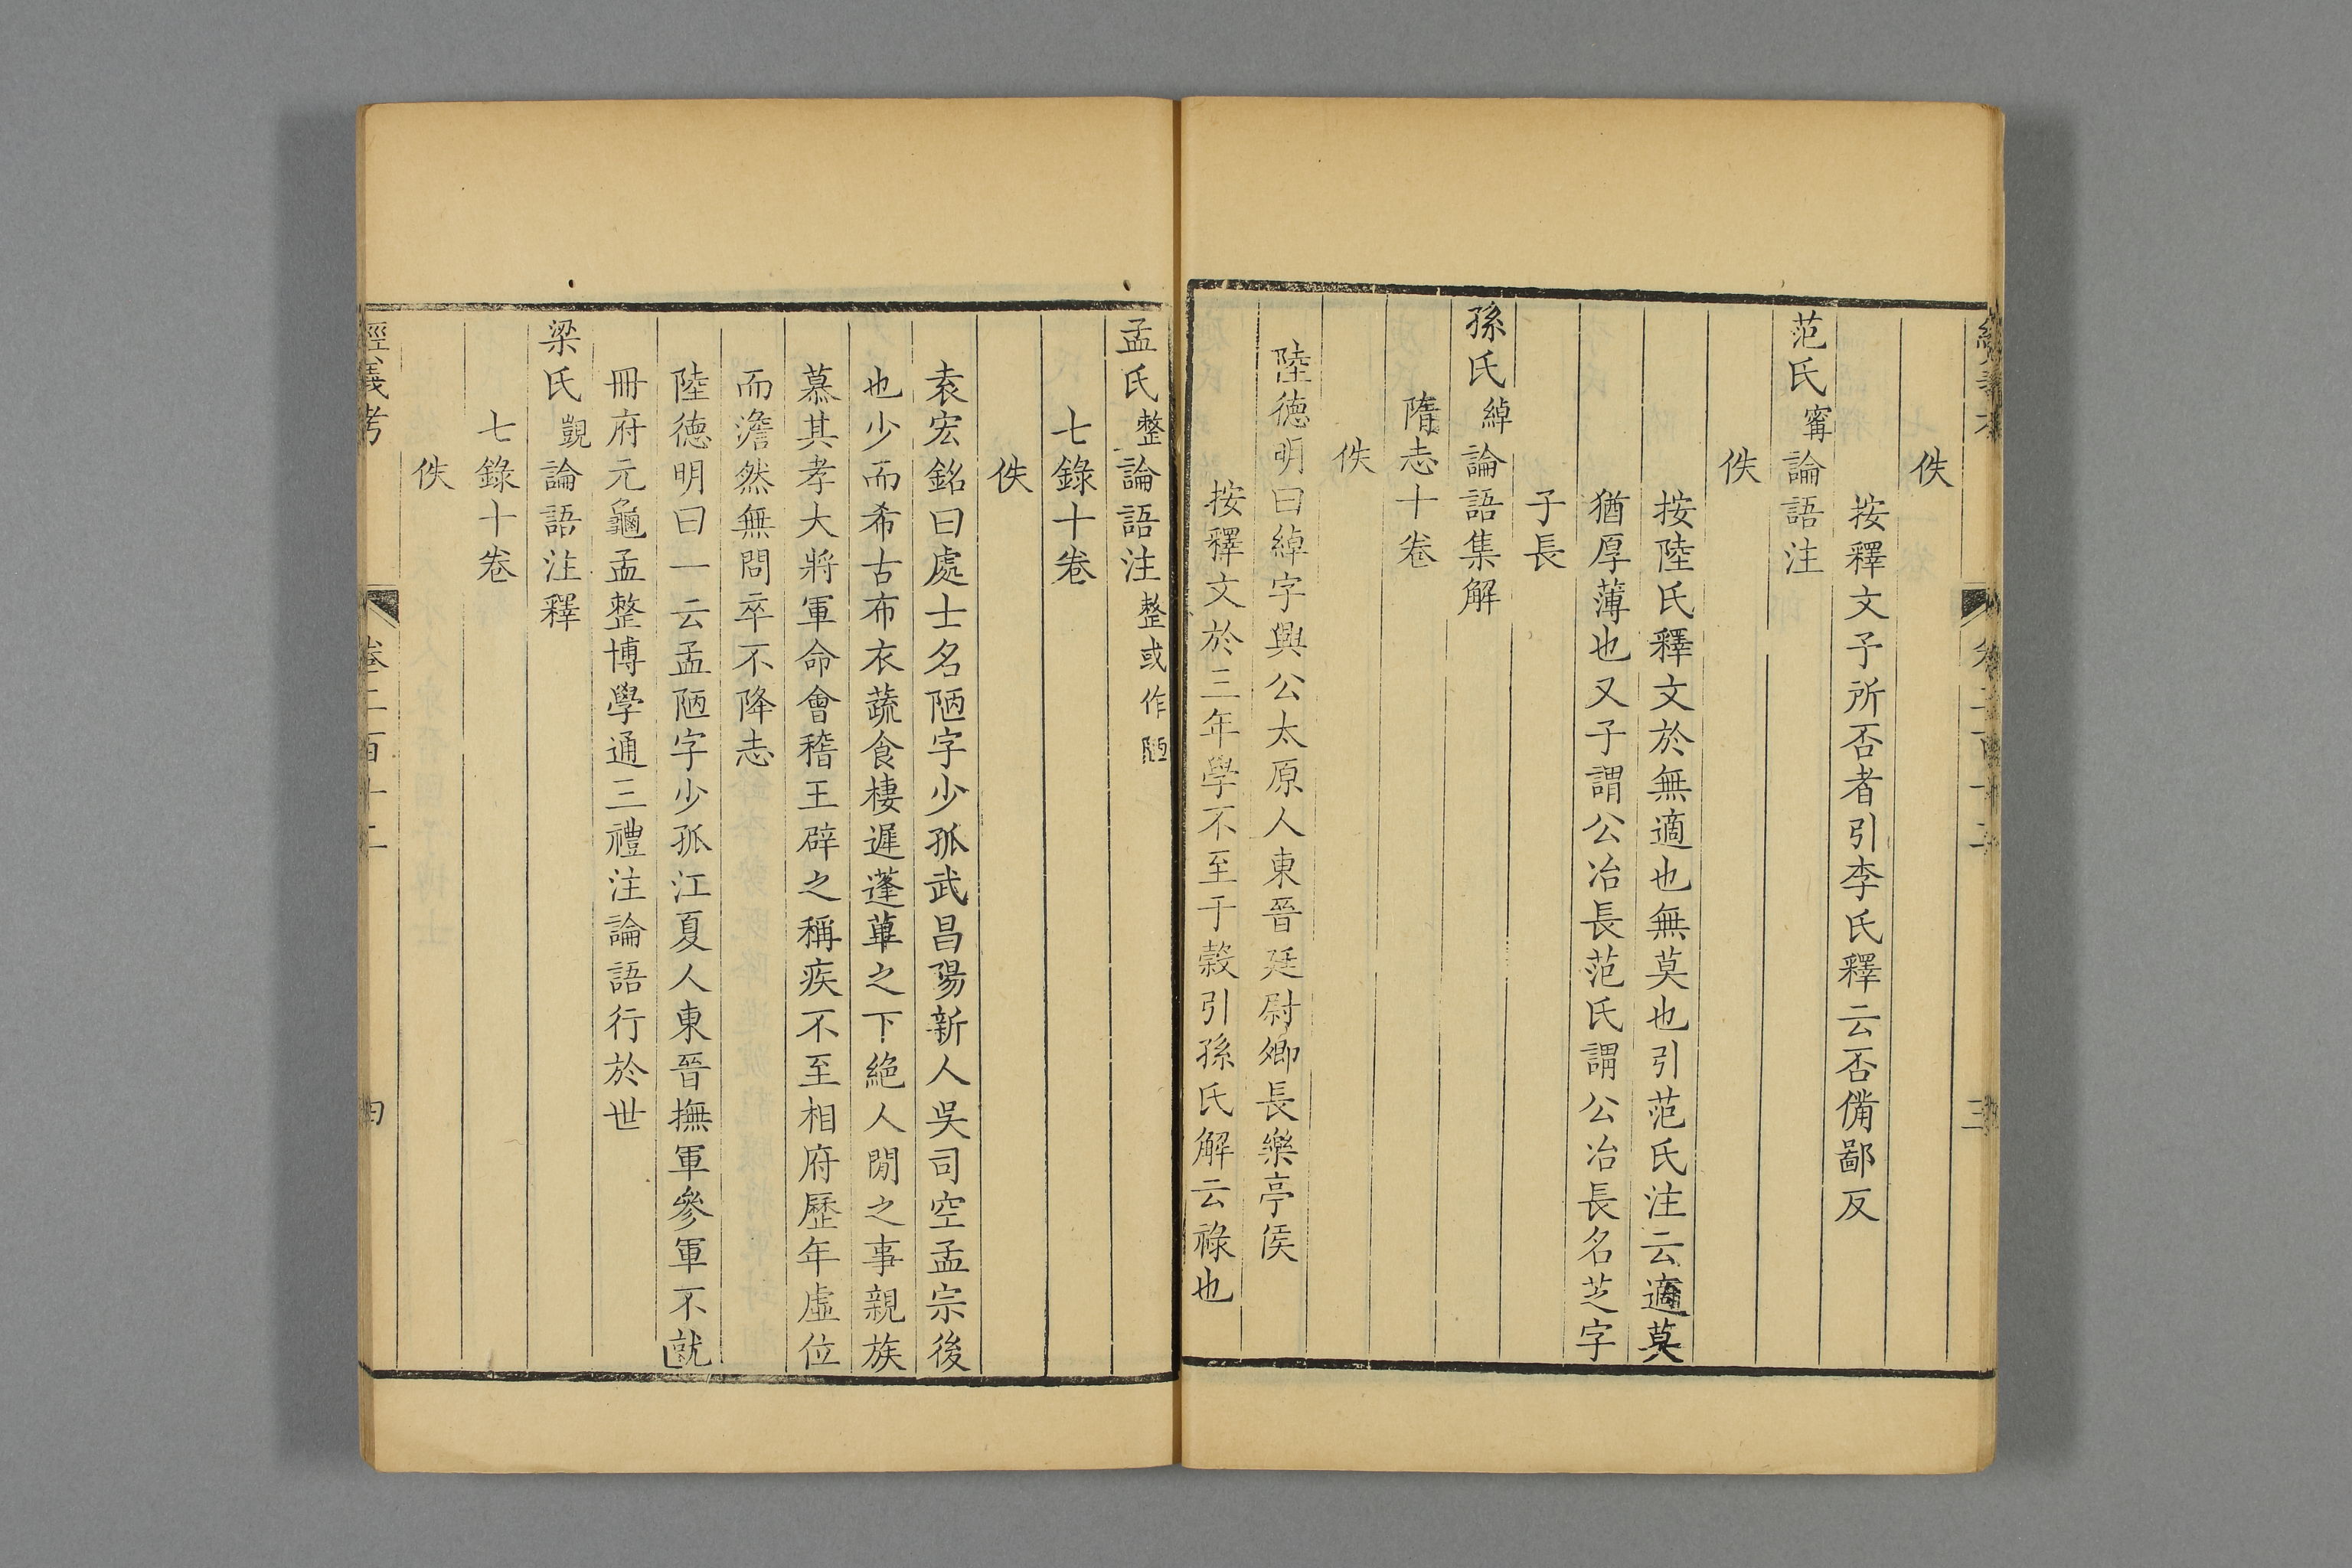 佚
按釋文予所否者引李氏釋云否備鄙反
范氏甯論語注
佚
按陸氏釋文於無適也無莫也引范氏注云適莫
猶厚薄也又子謂公冶長范氏謂公冶長名芝字
子長
孫氏綽論語集解
隋志十卷
佚
陸德明曰綽字興公太原人東晉廷尉卿長樂亭侯
按釋文於三年學不至于穀引孫氏解云祿也
孟氏整論語注整或作陋
七錄十卷
佚
袁宏銘曰處士名陋字少孤武昌陽新人吳司空孟宗後
也少而希古布衣蔬食棲遲蓬蓽之下絕人閒之事親族
慕其孝大將軍命會稽王辟之稱疾不至相府歷年虛位
而澹然無悶卒不降志
陸德明曰一云孟陋字少孤江夏人東晉撫軍參軍不就
冊府元龜孟整博學通三禮注論語行於世
梁氏覬論語注釋
七錄十卷
佚
經義考 卷二百十二 四